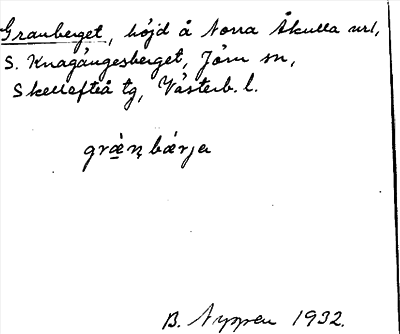 Granberget, höjd å Norra Åkulla url,
S. Knagångesberget, Jörn sn,
Skellefteå tg, Västerb. l.
grǽn̥ bǽrja
B. Nyppen 1932.